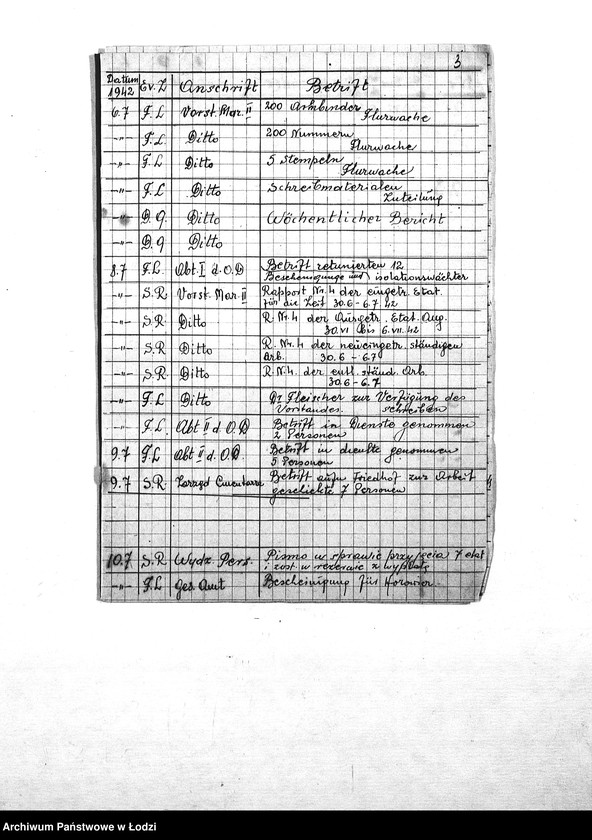 3
Datum 1942 Ev. Z Anschrift Betrift
6.7 F.L Vorst. Mar. II 200 Armbinden
Flurwache
-"- F.L. Ditto 200 Nummern
Flurwache
-"- F.L Ditto 5 Stempeln
Flurwache
-"- F.L Ditto Schreibmaterialen
Zuteilung
-"- D.G. Ditto Wöchentlicher Bericht
-"- D.G Ditto
8.7 F.L. Abt. I d. O.D Betrift retunierten 12
Bescheinigunge und isolationswächter
-"- S.R Vorst. Mar. II Rapport Nr. 4 der eingetr. Etat.
für die Zeit 30.6 - 6.7.42
-"- S.R. Ditto R. Nr. 4 der Ausgetr. Etat. Aug.
30.VI bis 6.VII.42
-"- S.R Ditto R. Nr. 4 der neueingetr. ständigen
Arb. 30.6 - 6.7
-"- S.R Ditto R. N. 4. der entl. ständ. Arb.
30.6 - 6.7
-"- F.L Ditto Dr Fleischer zur Verfigung des
Vorstandes. schreiben
-"- F.L. Abt II d. O.D Betrift in Dienste genommen
2 Personen
9.7 F.L Abt II d. O.D. Betrift in dienste genommen
5 Personen
9.7 S.R. Zarząd Betrift aufn Friedhof zur Arbeit
geschickte 7 Personen
10.7 S.R Wydz. Pers. Pismo w sprawie przyjęcia 7 etat
i zost. w rezerwie z wypłatą
-"- F.L Ges. Amt Bescheinigung für
Archiwum Państwowe w Łodzi